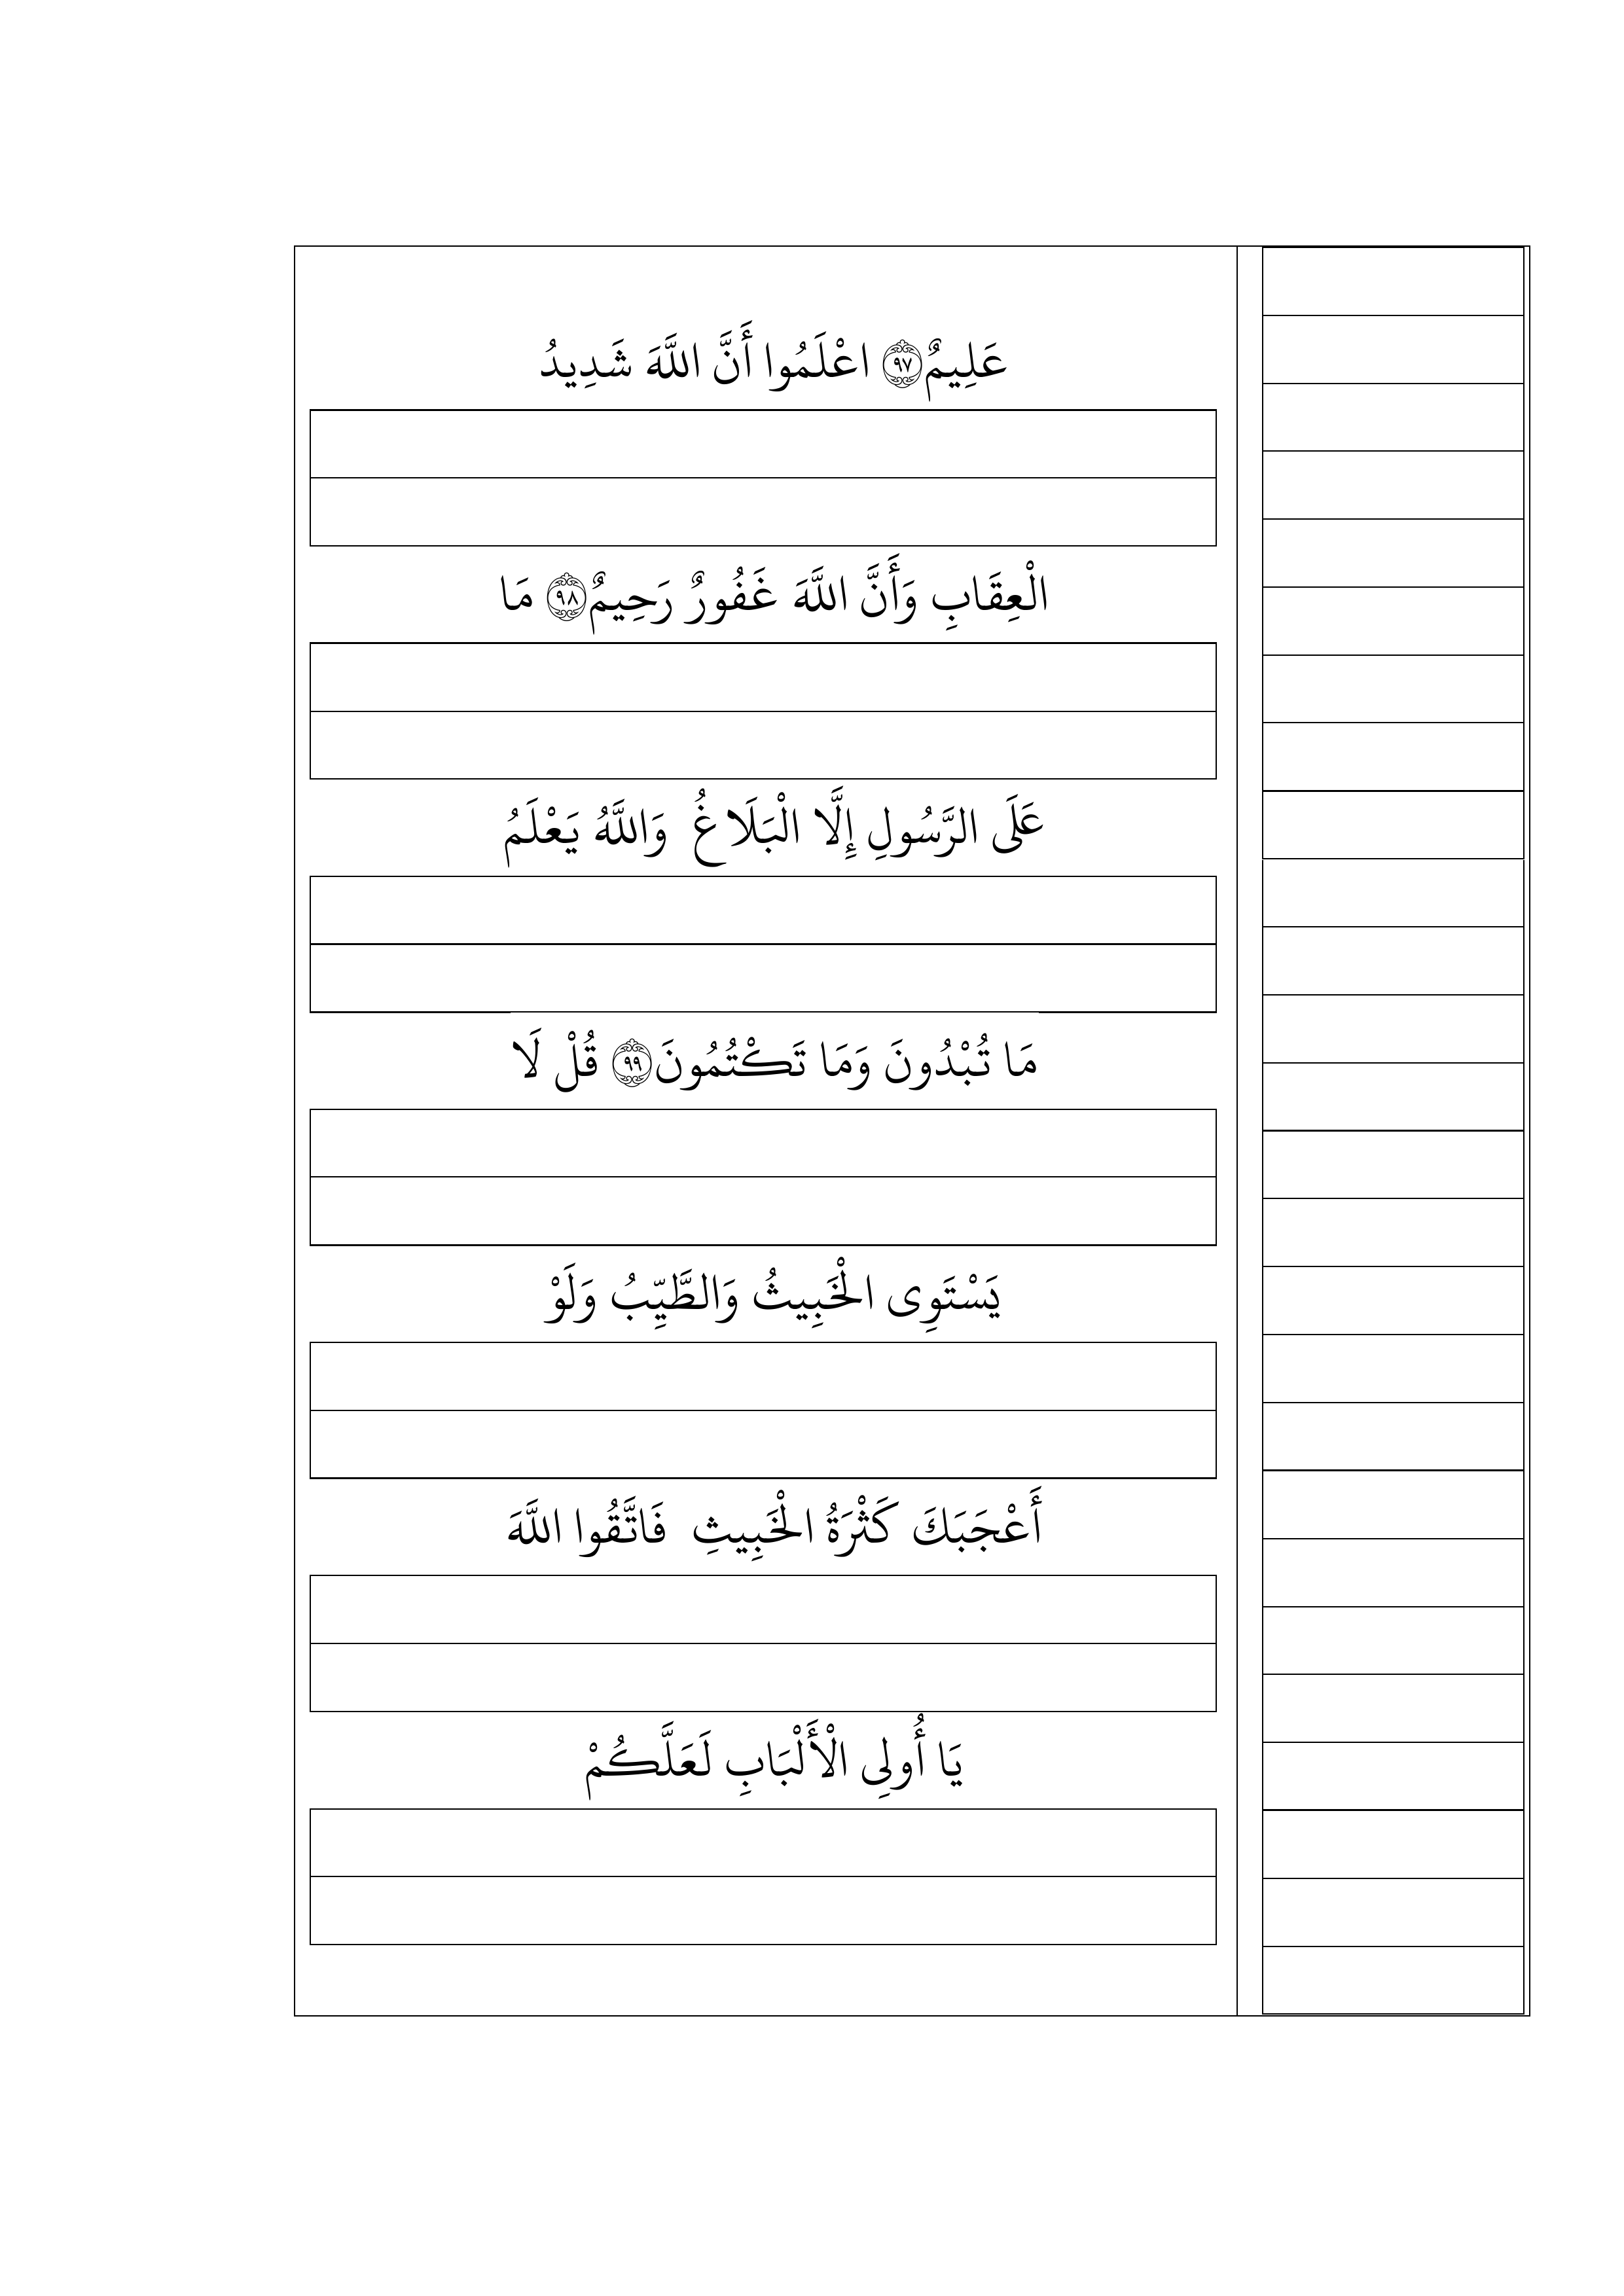 عَلِيمٌ ﴿٩٧﴾ اعْلَمُوا أَنَّ اللَّهَ شَدِيدُ
الْعِقَابِ وَأَنَّ اللَّهَ غَفُورٌ رَحِيمٌ ﴿٩٨﴾ مَا
عَلَى الرَّسُولِ إِلَّا الْبَلَاغُ وَاللَّهُ يَعْلَمُ
مَا تُبْدُونَ وَمَا تَكْتُمُونَ ﴿٩٩﴾ قُلْ لَا
يَسْتَوِى الْخَبِيثُ وَالطَّيِّبُ وَلَوْ
أَعْجَبَكَ كَثْرَةُ الْخَبِيثِ فَاتَّقُوا اللَّهَ
يَا أُولِى الْأَلْبَابِ لَعَلَّكُمْ